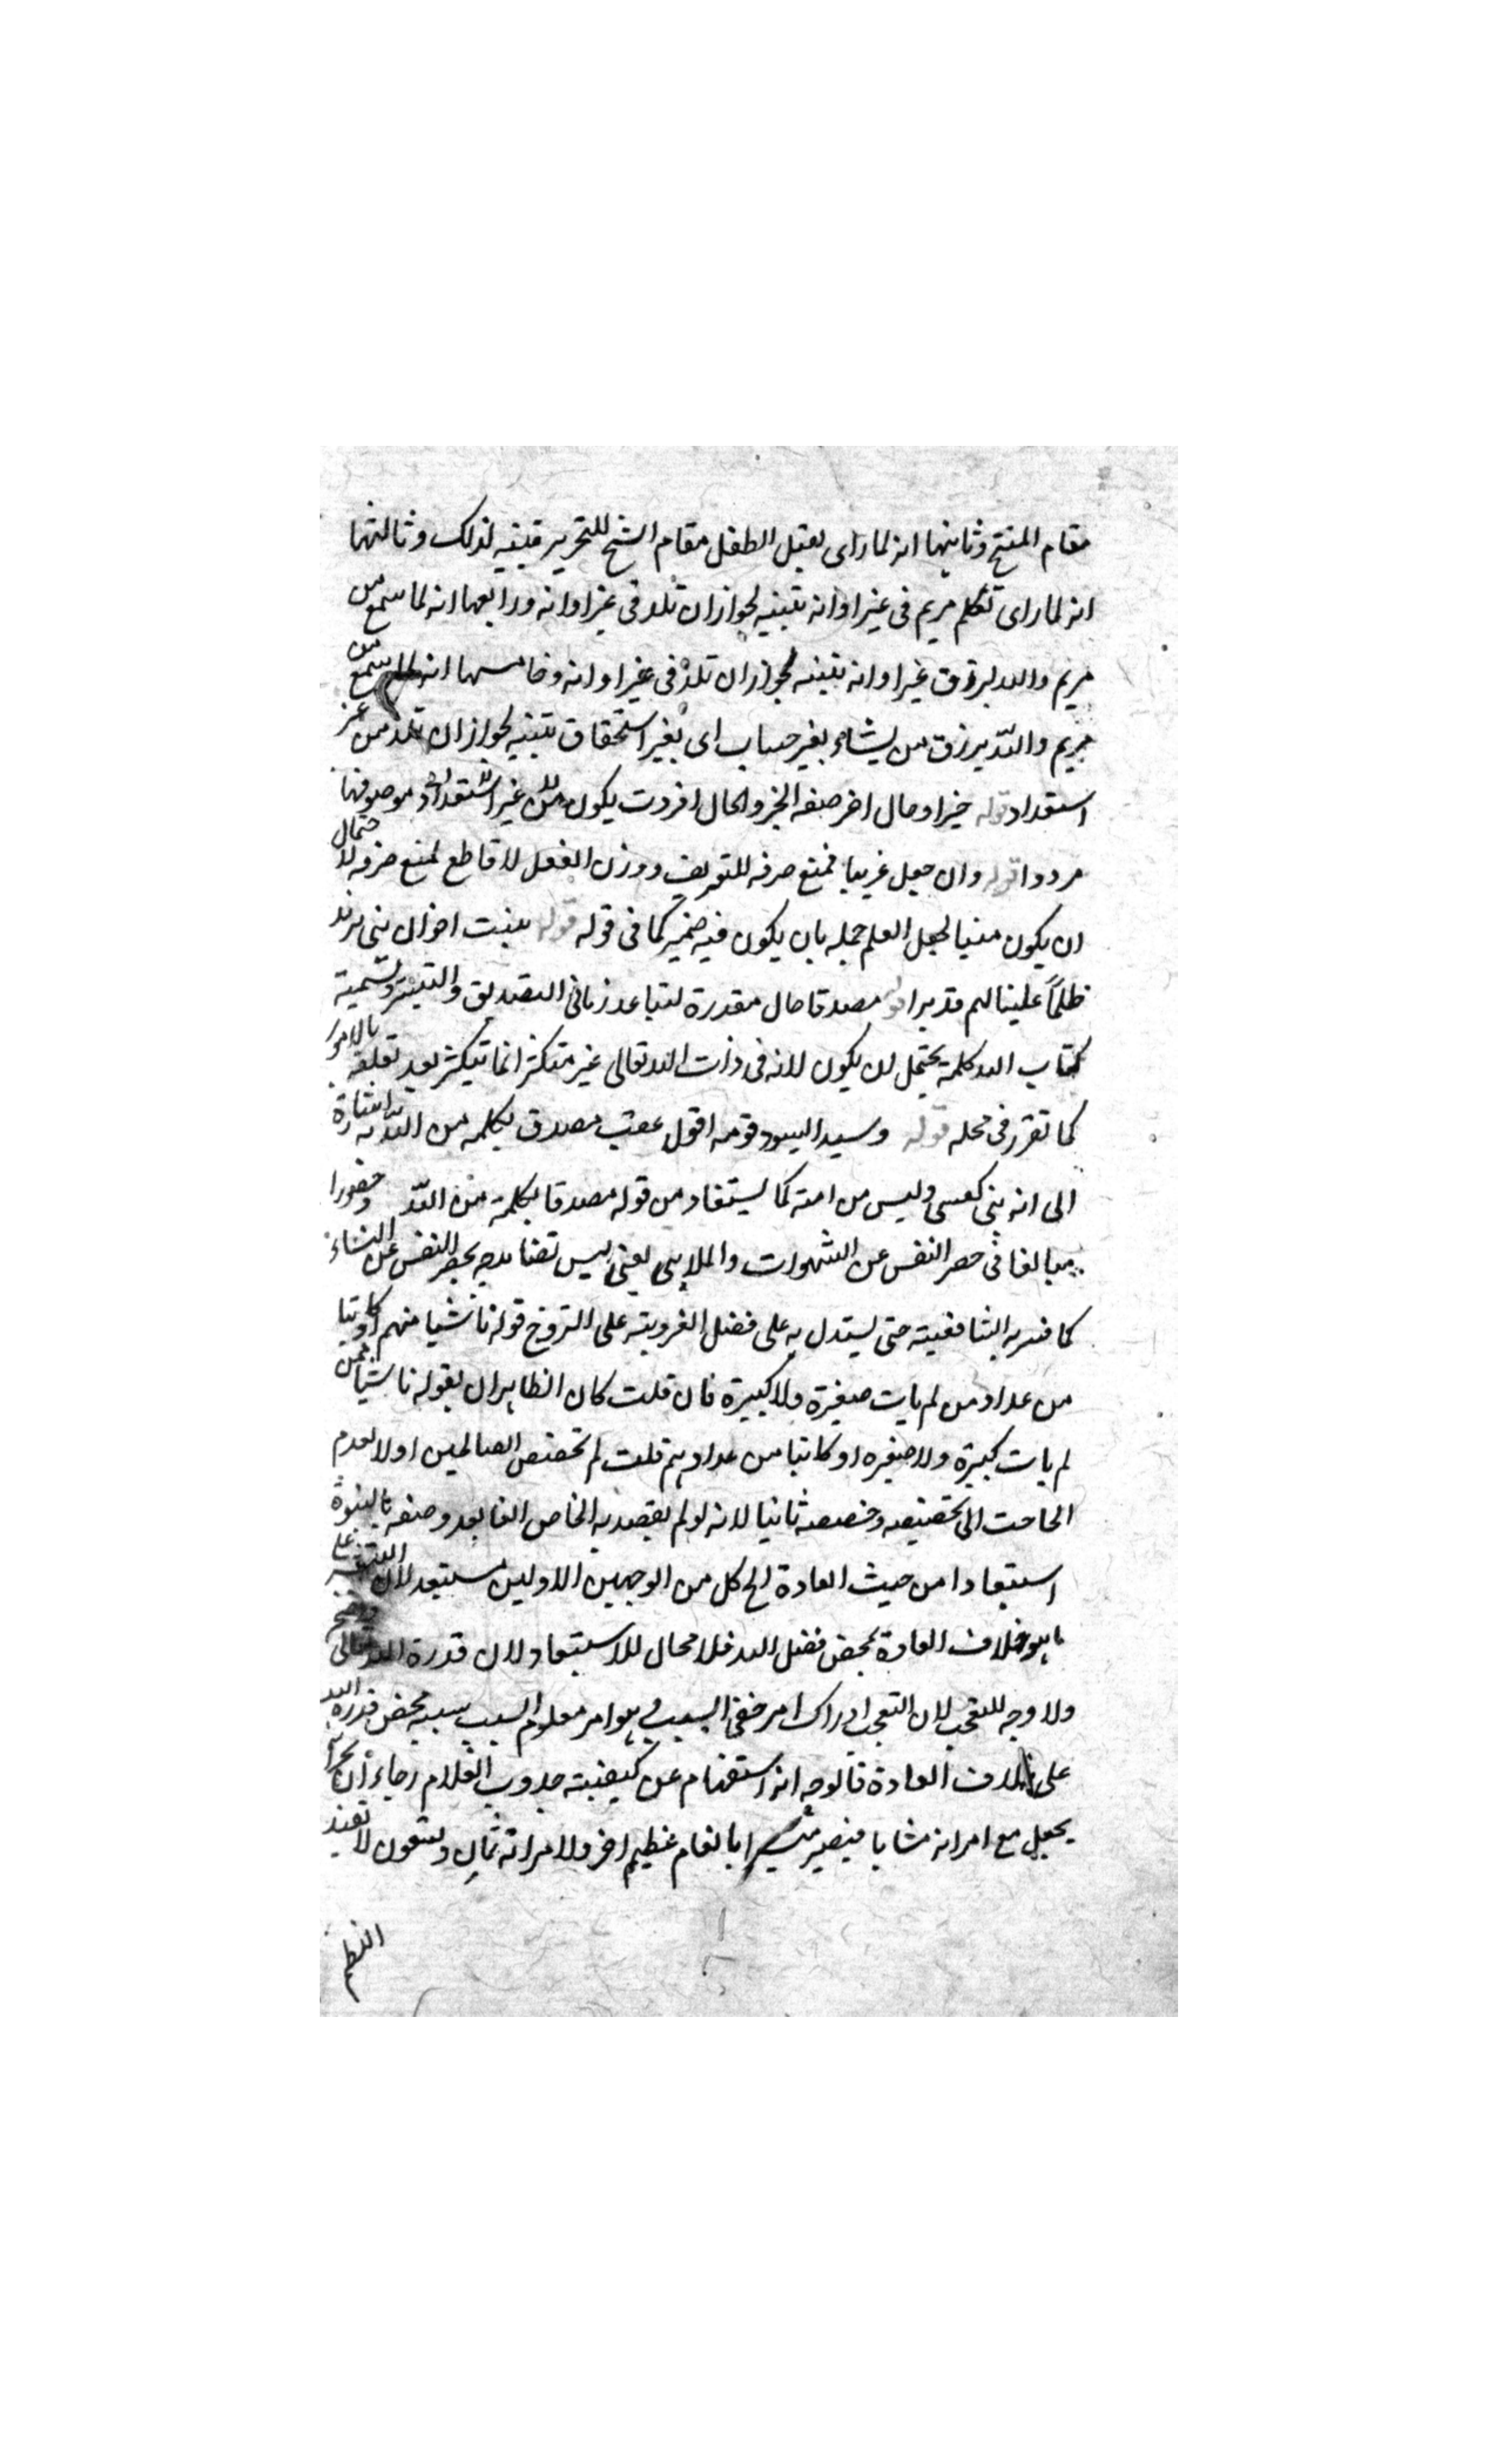 مقام المنتج وثانيها انه لما راى تقبل الطفل مقام الشيخ للتحرير فتنبه لذلك وثالثها
انه لما راى تكلم مريم فى غير اوانه تنبيه لجواز ان تلد فى غير اوانه ورابعها انه لما سمع من
مريم والله يرزق غير اوانه تنبيه لجواز ان تلد فى غير اوانه وخامسها انه لما سمع من
مريم والله يرزق من يشاء بغير حساب اى بغير استحقاق تنبيه لجواز ان تلد من غير
استعداد قوله خبر او حال اخر صفة الخبر والحال افردت يكون من غير استعداد موصوفها
مرددا قوله وان جعل عربيا فمنع صرفه للتعريف ووزن الفعل لا قاطع لمنع صرفه لاحتمال
ان يكون مبنيا لجعل العلم جملة بان يكون فيه ضمير كما فى قوله قوله نبئت اخوالى بنى يزيد
ظلماً علينا لهم فديرا قوله مصدقا حال مقدرة لتباعد زمانى التصديق والتبشير وتسمية
كتاب الله كلمة يحتمل ان يكون لانه فى ذات الله تعالى غير متكثر انما يتكثر بعد تعلقه بالامور
كما تقرر فى محله قوله وسيد اليسود قومه اقول عقب مصدق بكلمة من الله به اشارة
الى انه نبى كعيسى وليس من امته كما يستفاد من قوله مصدقا بكلمة من الله وحصورا
مبالغا فى حصر النفس عن الشهوات والملاهى يعنى ليس تمدحه بحصر النفس عن النساء
كما فسره الشافعية حتى يستدل به على فضل العزوبة على التزوج قوله ناشيا منهم او كاتبا
من عداد من لم يات صغيرة ولا كبيرة فان قلت كان الظاهر ان يقوله ناشيا ممن
لم يات كبيرة ولا صغيرة او كاتبا من عدادهم قلت لم تخصص الصالحين اولا لعدم
الحاجت الى تخصيصه وخصصه ثانيا لانه لو لم يقصد به الخاص الغا بعد وصفه بالنبوة
استبعادا من حيث العادة الخ كل من الوجهين الاولين مستبعد لان التبشير على
ما هو خلاف العادة بمحض فضل الله فلا مجال للاستبعاد لان قدرة الله تعالى
ولا وجه للتعجب لان التعجب ادراك امر خفى السبب وهو امر معلوم السبب سببه محض قدرة الله
على خلاف العادة فالوجه انه استفهام عن كيفية حدوث الغلام رجاء ان
يجعل مع امراته شابا فيصير مبشرا بانعام عظيم اخر ولامراته ثمان وتسعون لا تفيد
النظم